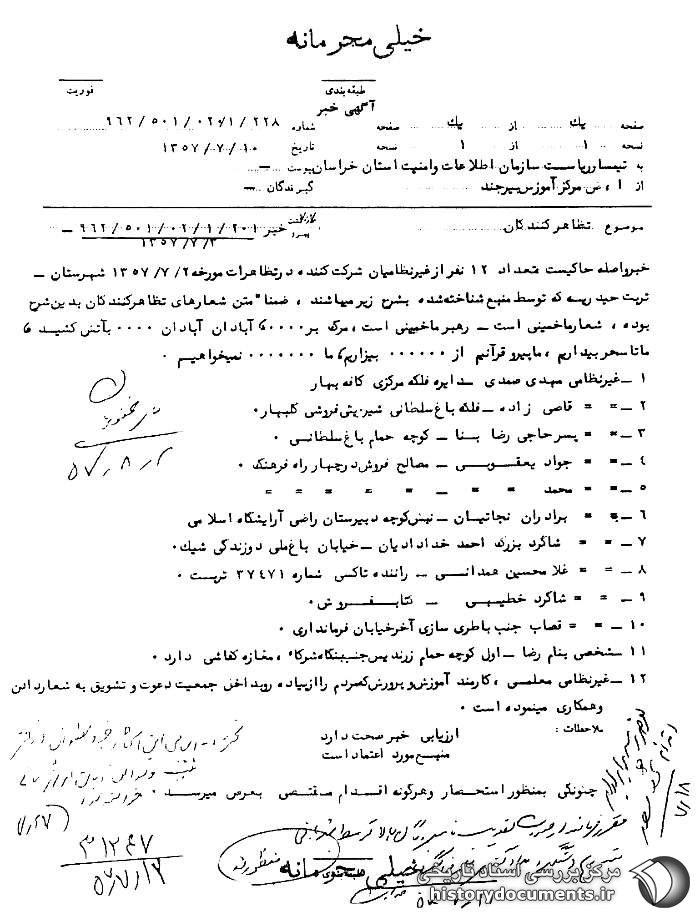 خیلی محرمانه
طبقه‌بندی
فوریت
آگهی خبر
صفحه یك از یك صفحه شماره ۹۶۲/۵۰۱/۰۲/۱/۲۲۸
نسخه ۱ از ۱ نسخه تاریخ ۱۳۵۷/۷/۱۰
به تیمسار ریاست سازمان اطلاعات وامنیت استان خراسان پیوست —
از ا ، ض مرکز آموزش بیرجند گیرندگان —
موضوع تظاهرکنندگان بازگشت پیرو خبر ۹۶۲/۵۰۱/۰۲/۱/۲۰۱ —
۱۳۵۷/۷/۳
خبرواصله حاکیست تعداد ۱۲ نفر از غیرنظامیان شرکت کننده درتظاهرات مورخه ۱۳۵۷/۷/۲ شهرستان —
تربت حیدریه که توسط منبع شناخته‌شده بشرح زیر میباشند ، ضمنا " متن شعارهای تظاهرکنندگان بدین‌شرح
بوده ، شعار ماخمینی است — رهبر ماخمینی است ، مرگ بر ۰۰۰۰ آبادان آبادان ۰۰۰۰ بآتش کشید
ماتاسحر بیداریم ، ماپیرو قرآنیم از ۰۰۰۰۰۰ بیزاریم ما ۰۰۰۰۰۰۰ نمیخواهیم ۰
۱ — غیرنظامی مهدی صمدی — دایره فلکه مرکزی کافه بهار
۲ — = = قاضی زاده — فلکه باغ‌سلطانی شیرینی‌فروشی گلبهار ۰
۳ — = = پسرحاجی رضا بنا — کوچه حمام باغ‌سلطانی ۰
۴ — = = جواد یعقوبی — مصالح فروش درچهار راه فرهنگ ۰
۵ — = = محمد = = — = = = = =
۶ — = = برادران نجاتیان — نبش‌کوچه دبیرستان راضی آرایشگاه اسلامی
۷ — = = شاگرد بزرگ احمد خدادادیان — خیابان باغ‌ملی دوزندگی شیك ۰
۸ — = = غلامحسین همدانی — راننده تاکسی شماره ۳۷۴۷۱ تربت ۰
۹ — = = شاگرد خطیبی — کتابفروش ۰
۱۰ — = = قصاب جنب باطری سازی آخرخیابان فرمانداری ۰
۱۱ — شخصی بنام رضا — اول کوچه حمام زرند پس جنب‌بنگاه‌شرکاء ، مغازه کفاشی دارد ۰
۱۲ — غیرنظامی معلمی ، کارمند آموزش‌وپرورش‌که‌مردم را ازپیاده روبداخل جمعیت دعوت و تشویق به شعاردادن
وهمکاری مینموده است ۰
ملاحظات : ارزیابی خبرصحت دارد
منبع‌مورد اعتماد است
چنونگی بمنظور استحضار وهرگونه اقدام مقتضی بعرض میرسد ۰
۵۷/۸/۲
۷/۲۷
۷/۱۸
۳۱۲۶۷
۵۷/۷/۱۲
خیلی محرمانه
مرکز بررسی اسناد تاریخی
historydocuments.ir